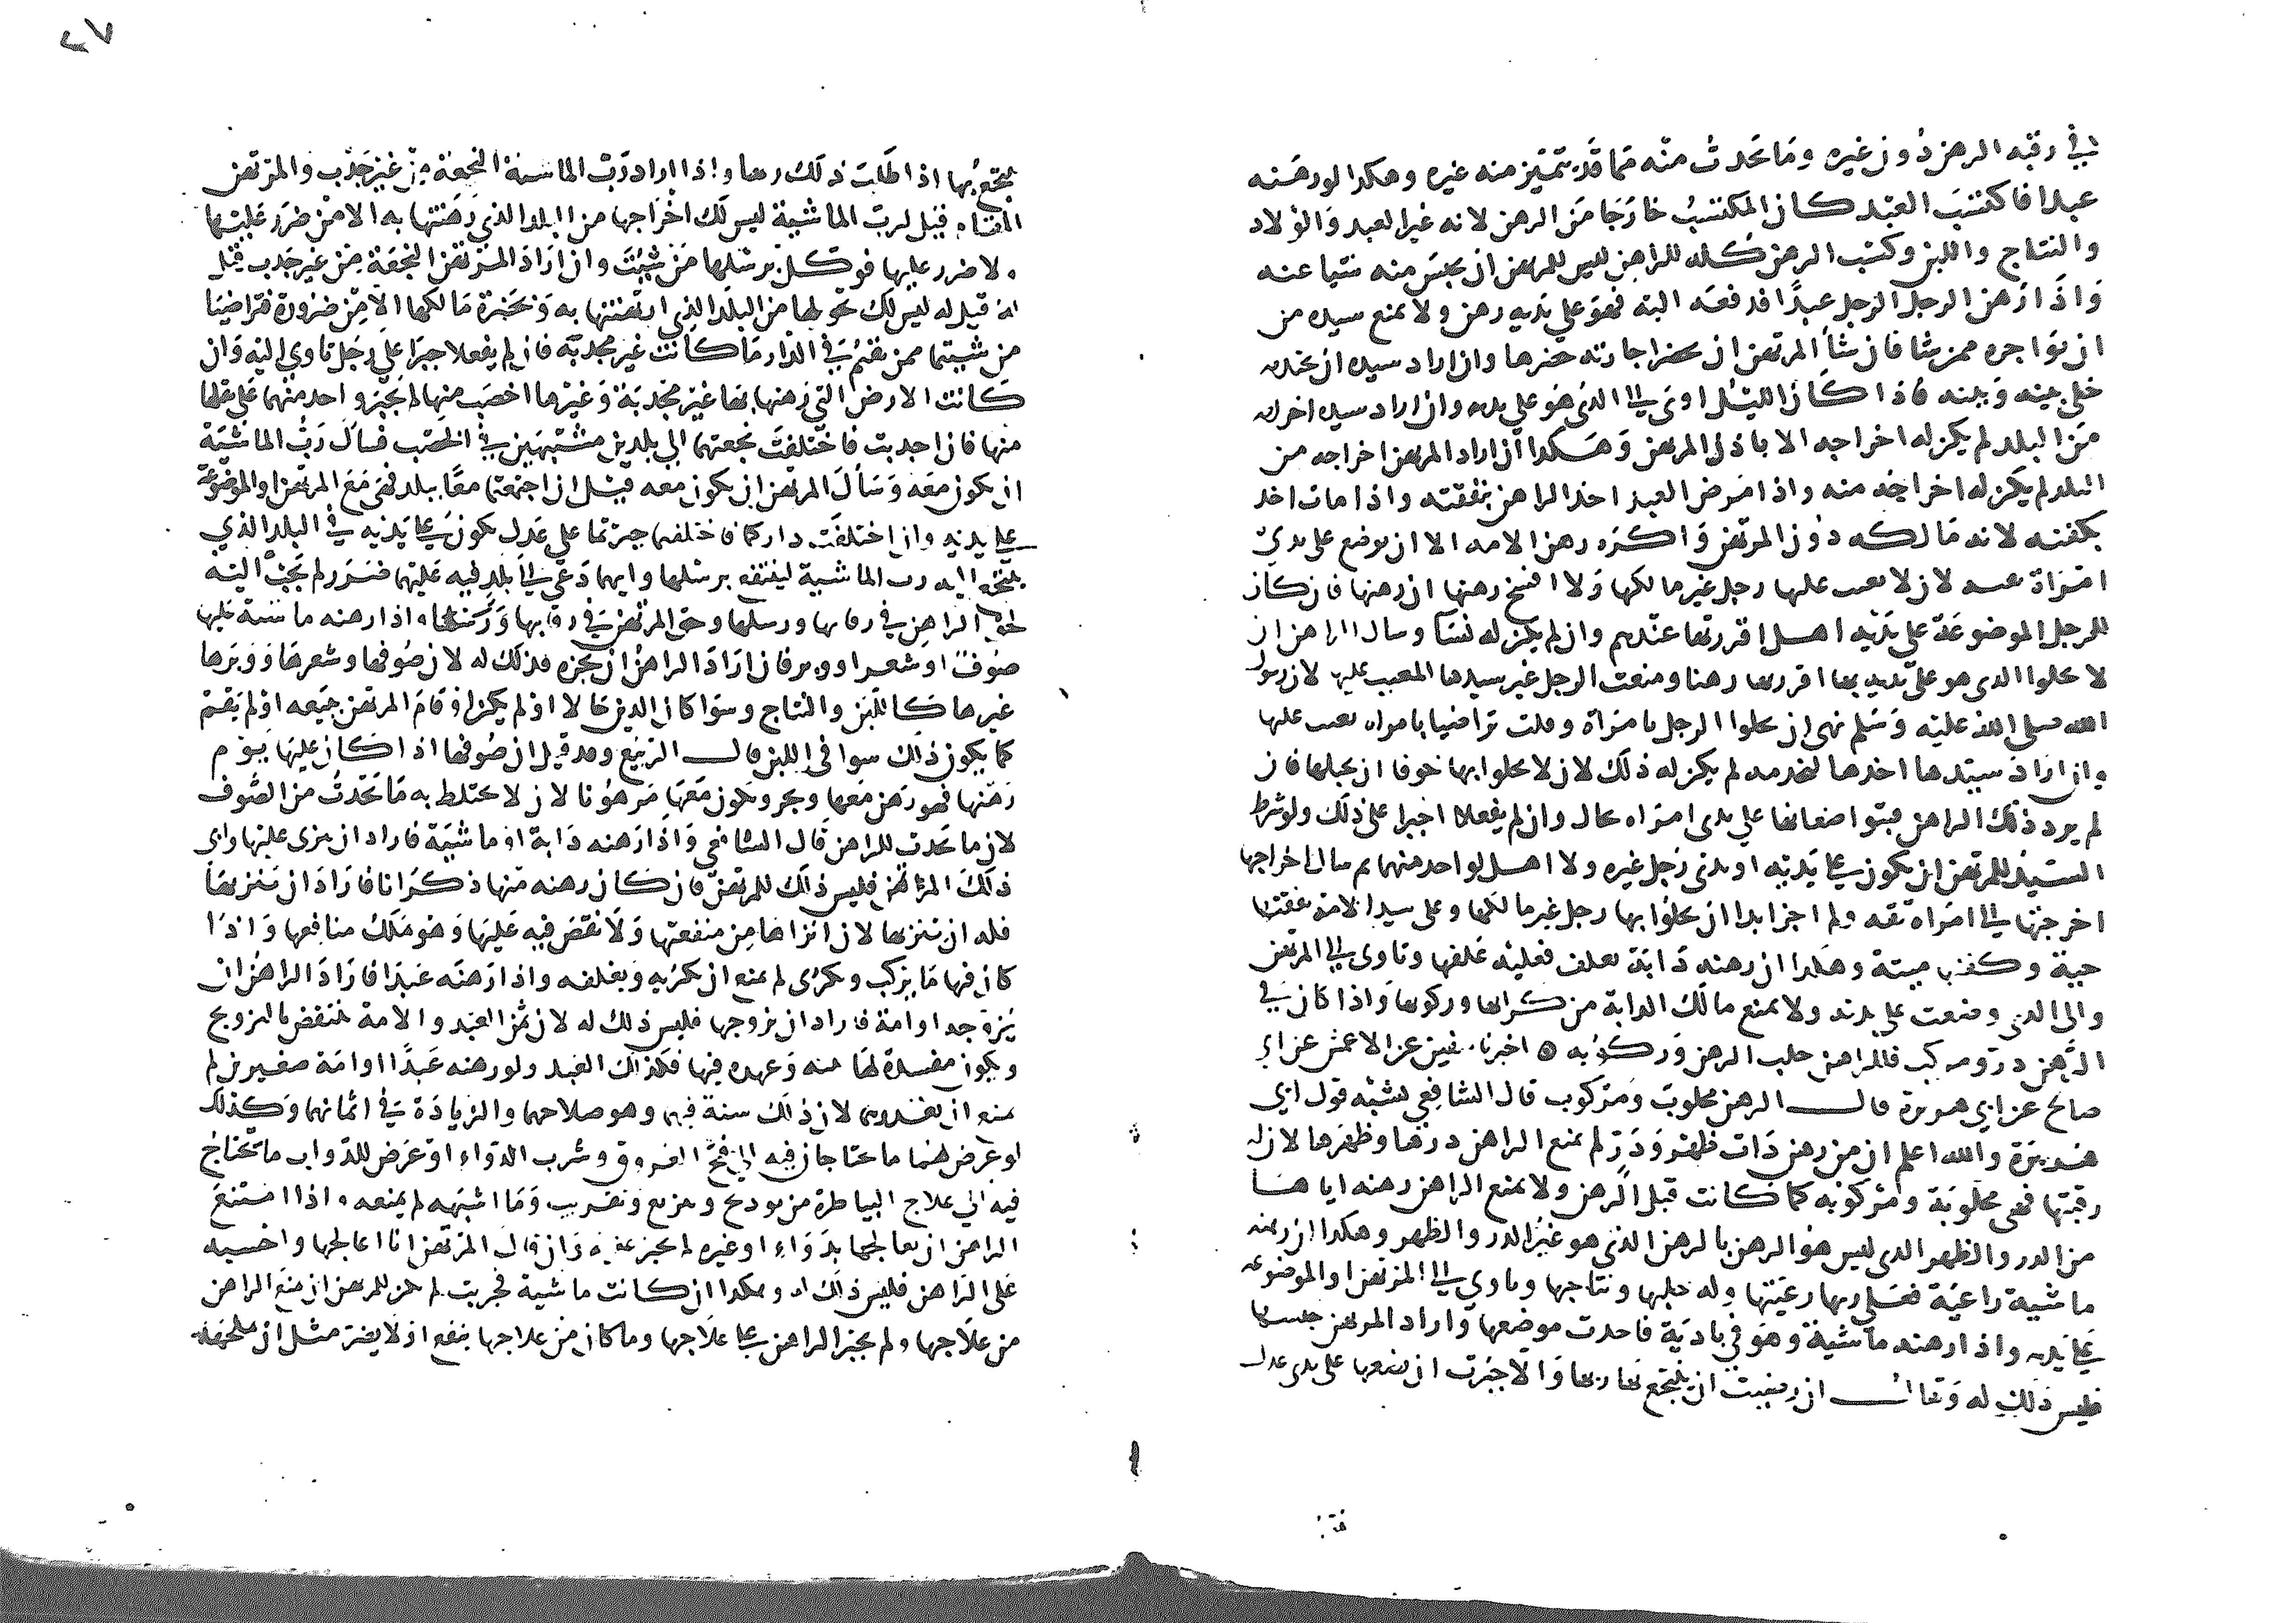 في رقبة الرهن دون غيره وما يحدث منه مما قد يتميز منه غيره وهكذا لو رهنه
عبدا فاكتسب العبد كان المكتسب خارجا من الرهن لانه غير العبد والولاد
والنتاج واللبن وكسب الرهن كله للراهن ليس للمرتهن ان يحبس منه شيا عنه
واذا رهن الرجل الرجل عبدا فدفعه اليه فهو على يديه رهن ولا يمنع سيده من
ان يواجره ممن شا فان شا المرتهن ان يحضر اجارته حضرها وان اراد سيده ان يخدمه
خلى بينه وبينه فاذا كان الليل اوى الى الذي هو على يديه وان اراد سيده اخراجه
من البلد لم يكن له اخراجه الا باذن المرتهن وهكذا ان اراد المرتهن اخراجه من
البلد لم يكن له اخراجه منه واذا مرض العبد اخذ الراهن بنفقته واذا مات اخذ
بكفنه لانه مالكه دون المرتهن واكره رهن الامة الا ان توضع على يدي
امراة ثقة لان لا يغب عليها رجل غير مالكها ولا افسخ رهنها ان رهنها فان كان
للرجل الموضوعة على يديه اهل اقررتها عندهم وان لم يكن له نسا وسال الراهن ان
لا يخلوا الذي هو على يديه بها اقررتها رهنا ومنعت الرجل غير سيدها المغيب عليها لان رسول
الله صلى الله عليه وسلم نهى ان يخلوا الرجل بامراة وقلت تراضيا بامراه تغيب عليها
وان اراد سيدها اخذها لتخدمه لم يكن له ذلك لان لا يخلوا بها خوفا ان يحبلها فان
لم يرد ذلك الراهن فيتواضعانها على يدى امراه بحال وان لم يفعلا اجبرا على ذلك ولو شرط
السيد للمرتهن ان يكون على يديه او يدي رجل غيره ولا اهل لواحد منهما ثم سال اخراجها
اخرجتها الى امراة ثقه ولم اجز ابدا ان يخلوا بها رجل غير مالكها وعلى سيد الامة نفقتها
حية وكفنها ميتة وهكذا ان رهنه دابة تعلف فعليه علفها وتاوى الى المرتهن
والى الذي وضعت على يديه ولا يمنع مالك الدابة من كرائها وركوبها واذا كان في
الرهن در ومركب فللراهن حلب الرهن وركوبه اخبرنا سفين عن الاعمش عن ابي
صالح عن ابي هريرة قال الرهن محلوب ومركوب قال الشافعي يشبه قول ابي
هريرة والله اعلم ان من رهن ذات ظهر ودر لم يمنع الراهن درها وظهرها لان له
رقبتها فهى محلوبة ومركوبه كما كانت قبل الرهن ولا يمنع الراهن رهنه اياها
من الدر والظهر الذي ليس هو الرهن بالرهن الذي هو غير الدر والظهر وهكذا ان رهنه
ماشية راعية فعلى ربها رعيتها وله حلبها ونتاجها وتاوي الى المرتهن او الموضوعه
على يديه واذا رهنه ماشية وهو في بادية فاجدبت موضعها واراد المرتهن حبسها
فليس ذلك له ويقال ان رضيت ان ينتجع بها ربها والا جبرت ان تضعها على يدى عدل
ينتجع بها اذا طلب ذلك ربها واذا اراد رب الماشية النجعة من غير جدب والمرتهن
المقام قيل لرب الماشية ليس لك اخراجها من البلد الذي رهنتها به الا من ضرر عليها
ولا ضرر عليها فوكل برسلها من شيت وان اراد المرتهن النجعة من غير جدب قيل
له ليس لك تحويلها من البلد الذي ارتهنتها به وبحضرة مالكها الا من ضرورة فتراضيا
من شيتما ممن يقيم في الدار ما كانت غير مجدبة فان لم يفعلا جبرا على رجل تاوي اليه وان
كانت الارض التي رهنها بها غير مجدبة وغيرها اخصب منها لم يجبر واحد منهما على نقلها
منها فان اجدبت فاختلفت نجعتهما الى بلدين مشتبهين في الخصب فسال رب الماشية
ان يكون معه وسال المرتهن ان يكون معه قيل ان اجتمعتما معا ببلد فهى مع المرتهن او الموضوعة
على يديه وان اختلفت داركما فاختلفتما جبرتما على عدل يكون على يديه في البلد الذي
ينتجع اليه رب الماشية لينتفع برسلها وايهما دعى الى بلد فيه عليها ضرر لم يجب اليه
لحق الراهن في رقابها ورسلها وحق المرتهن في رقابها واذا رهنه ماشية عليها
صوف او شعر او وبر فان اراد الراهن ان يجزه فذلك له لان صوفها وشعرها ووبرها
غيرها كاللبن والنتاج وسوا كان الدين حالا او لم يكن او قام المرتهن ببيعه او لم يقم
كما يكون ذلك سوا في اللبن قال الربيع وقد قيل ان صوفها اذا كان عليها يوم
رهنها فهو رهن معها ويجز ويكون معها مرهونا لان لا يختلط به ما يحدث من الصوف
لان ما يحدث للراهن قال الشافعي واذا رهنه دابة او ماشية فاراد ان ينزى عليها وابى
ذلك المرتهن فليس ذلك للمرتهن فان كان رهنه منها ذكرانا فاراد ان ينزيها
فله ان ينزيها لان انزاها من منفعتها ولا نقص فيه عليها وهو ملك منافعها واذا
كان فيها ما يركب ويكرى لم يمنع ان يكريه ويعلفه واذا رهنه عبدا فاراد الراهن ان
يزوجه او امة فاراد ان يزوجها فليس ذلك له لان ثمن العبد والامة ينتقض بالتزويج
ويكون مفسدة لها منه وعهده فيها فكذلك العبد ولو رهنه عبدا او امة صغيرين لم
يمنع ان يعذرهما لان ذلك سنة فيهما وهو صلاحهما والزيادة في اثمانهما وكذلك
لو عرض لهما ما يحتاجان فيه الى فتح العروق وشرب الدواء او عرض للدواب ما تحتاج
فيه الى علاج البياطرة من توديج وتبزيغ وتعريب وما اشبهه لم يمنعه واذا امتنع
الراهن ان يعالجها بدواء او غيره لم يجبر عليه وان قال المرتهن انا اعالجها واحسبه
على الراهن فليس ذلك له وهكذا ان كانت ماشية فجربت لم يكن للمرتهن ان يمنع الراهن
من علاجها ولم يجبر الراهن على علاجها وما كان من علاجها ينفع اذ لا يضر مثل ان يملحها